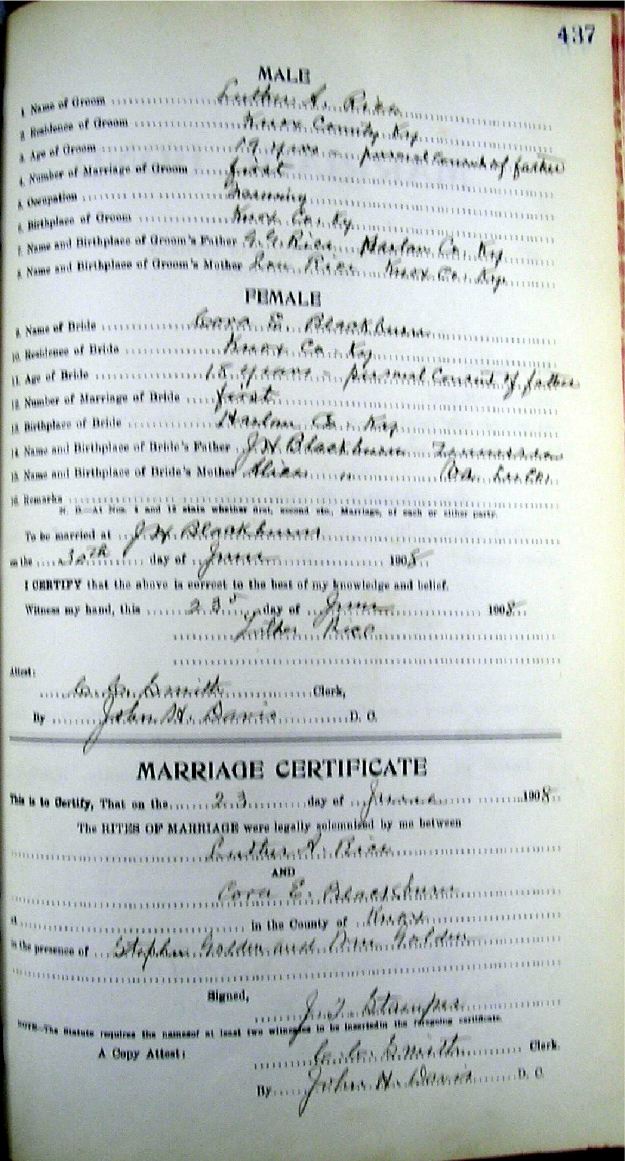 437
MALE
1. Name of Groom Luther A. Rice
2. Residence of Groom Knox County Ky
3. Age of Groom 19 years - personal Consent of father
4. Number of Marriage of Groom first
5. Occupation
6. Birthplace of Groom Knox Co. Ky
7. Name and Birthplace of Groom's Father G.G. Rice Harlan Co. Ky
8. Name and Birthplace of Groom's Mother Lou Rice Knox Co. Ky
FEMALE
9. Name of Bride Cora E. Blackburn
10. Residence of Bride Knox Co. Ky
11. Age of Bride years - personal Consent of father
12. Number of Marriage of Bride first
13. Birthplace of Bride Harlan Co. Ky
14. Name and Birthplace of Bride's Father J.H. Blackburn Tennessee
15. Name and Birthplace of Bride's Mother Alice " Va.
16. Remarks
N. B.—At Nos. 4 and 12 state whether first, second etc., Marriage, of each or either party.
To be married at J.H. Blackburns
on the 30th day of June 1908
I CERTIFY that the above is correct to the best of my knowledge and belief.
Witness my hand, this 23 day of June 1908
Luther Rice
Attest:
C. C. Smith Clerk,
By John H. Davis D. C.
MARRIAGE CERTIFICATE
This is to Certify, That on the 23 day of June 1908
The RITES OF MARRIAGE were legally solemnized by me between
Luther A. Rice
AND
Cora E. Blackburn
at in the County of Knox
in the presence of Stephen Golden and Golden
Signed,
J. T. Stamper
NOTE—The Statute requires the names of at least two witnesses to be inserted in the foregoing certificate.
A Copy Attest: C. C. Smith Clerk.
By John H. Davis D. C.